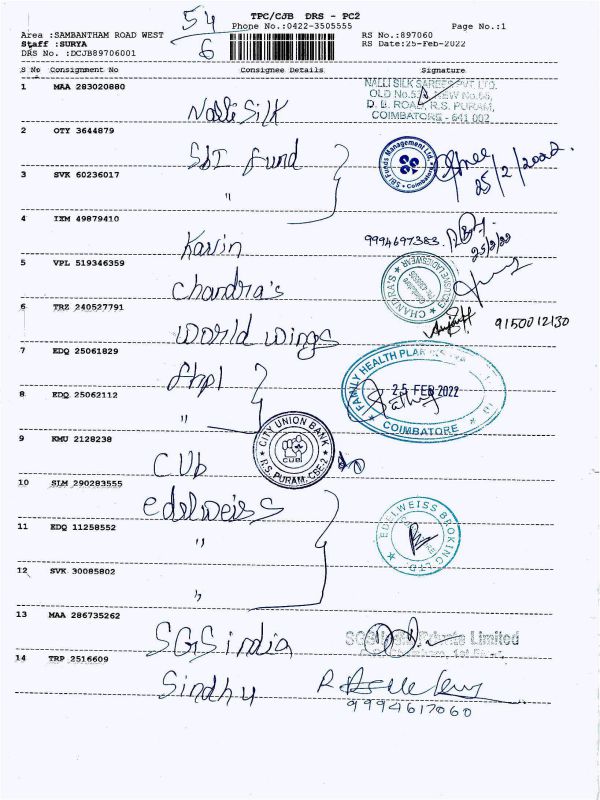 54
6
TPC/CJB DRS - PC2
Phone No.:0422-3505555
Page No.:1
Area :SAMBANTHAM ROAD WEST
RS No.:897060
Staff :SURYA
RS Date:25-Feb-2022
DRS No. :DCJB89706001
S No Consignment No Consignee Details Signature
1 MAA 283020880
Nalli Silk
NALLI SILK SAREES PVT. LTD.
D. B. ROAD, R.S. PURAM,
COIMBATORE - 641 002
2 OTY 3644879
SBI Fund
SBI Funds Management Ltd. Coimbatore
25/2/2022.
3 SVK 60236017
"
4 IXM 49879410
Kavin
9994697383
25/2/22
5 VPL 519346359
Chandra's
CHANDRA'S
6 TRZ 240527791
World Wings
9150012130
7 EDQ 25061829
fhpl
FAMILY HEALTH PLAN
25 FEB 2022
COIMBATORE
8 EDQ 25062112
"
9 KMU 2128238
CUb
CITY UNION BANK
C.U.B.
R.S. PURAM, CBE-2
10 SLM 290283555
edelweiss
11 EDQ 11258552
"
EDELWEISS BROKING LTD
12 SVK 30085802
"
13 MAA 286735262
SGS india
Private Limited
14 TRP 2516609
Sindhu
9994617060